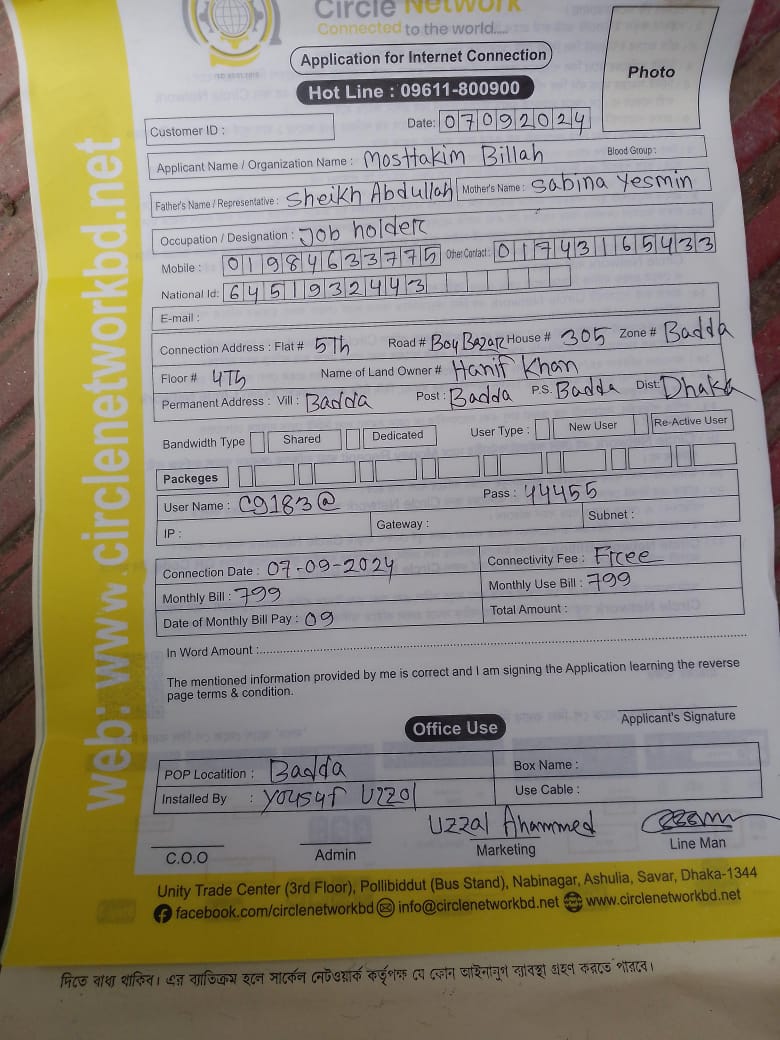 Circle Network
Connected to the world.....
Application for Internet Connection
Hot Line : 09611-800900
Photo
Customer ID :
Date: 07092024
Applicant Name / Organization Name : Mosttakim Billah Blood Group :
Father's Name / Representative : Sheikh Abdullah Mother's Name : Sabina Yesmin
Occupation / Designation : Job holder
Mobile : 01984633775 Other Contact : 01743165433
National Id: 6451932443
E-mail :
Connection Address : Flat # 5Th Road # Boy Bazar House # 305 Zone # Badda
Floor # 4Th Name of Land Owner # Hanif Khan
Permanent Address : Vill : Badda Post : Badda P.S. Badda Dist: Dhaka
Bandwidth Type Shared Dedicated User Type : New User Re-Active User
Packeges
User Name : C9183@ Pass : 44455
IP : Gateway : Subnet :
Connection Date : 07-09-2024 Connectivity Fee : Free
Monthly Bill : 799 Monthly Use Bill : 799
Date of Monthly Bill Pay : 09 Total Amount :
In Word Amount :
The mentioned information provided by me is correct and I am signing the Application learning the reverse
page terms & condition.
Applicant's Signature
Office Use
POP Locatition : Badda Box Name :
Installed By : Yousuf Uzzol Use Cable :
Uzzal Ahammed
C.O.O Admin Marketing Line Man
Unity Trade Center (3rd Floor), Pollibiddut (Bus Stand), Nabinagar, Ashulia, Savar, Dhaka-1344
facebook.com/circlenetworkbd info@circlenetworkbd.net www.circlenetworkbd.net
web: www.circlenetworkbd.net
দিতে বাধ্য থাকিব। এর ব্যতিক্রম হলে সার্কেল নেটওয়ার্ক কর্তৃপক্ষ যে কোন আইনানুগ ব্যবস্থা গ্রহণ করতে পারবে।